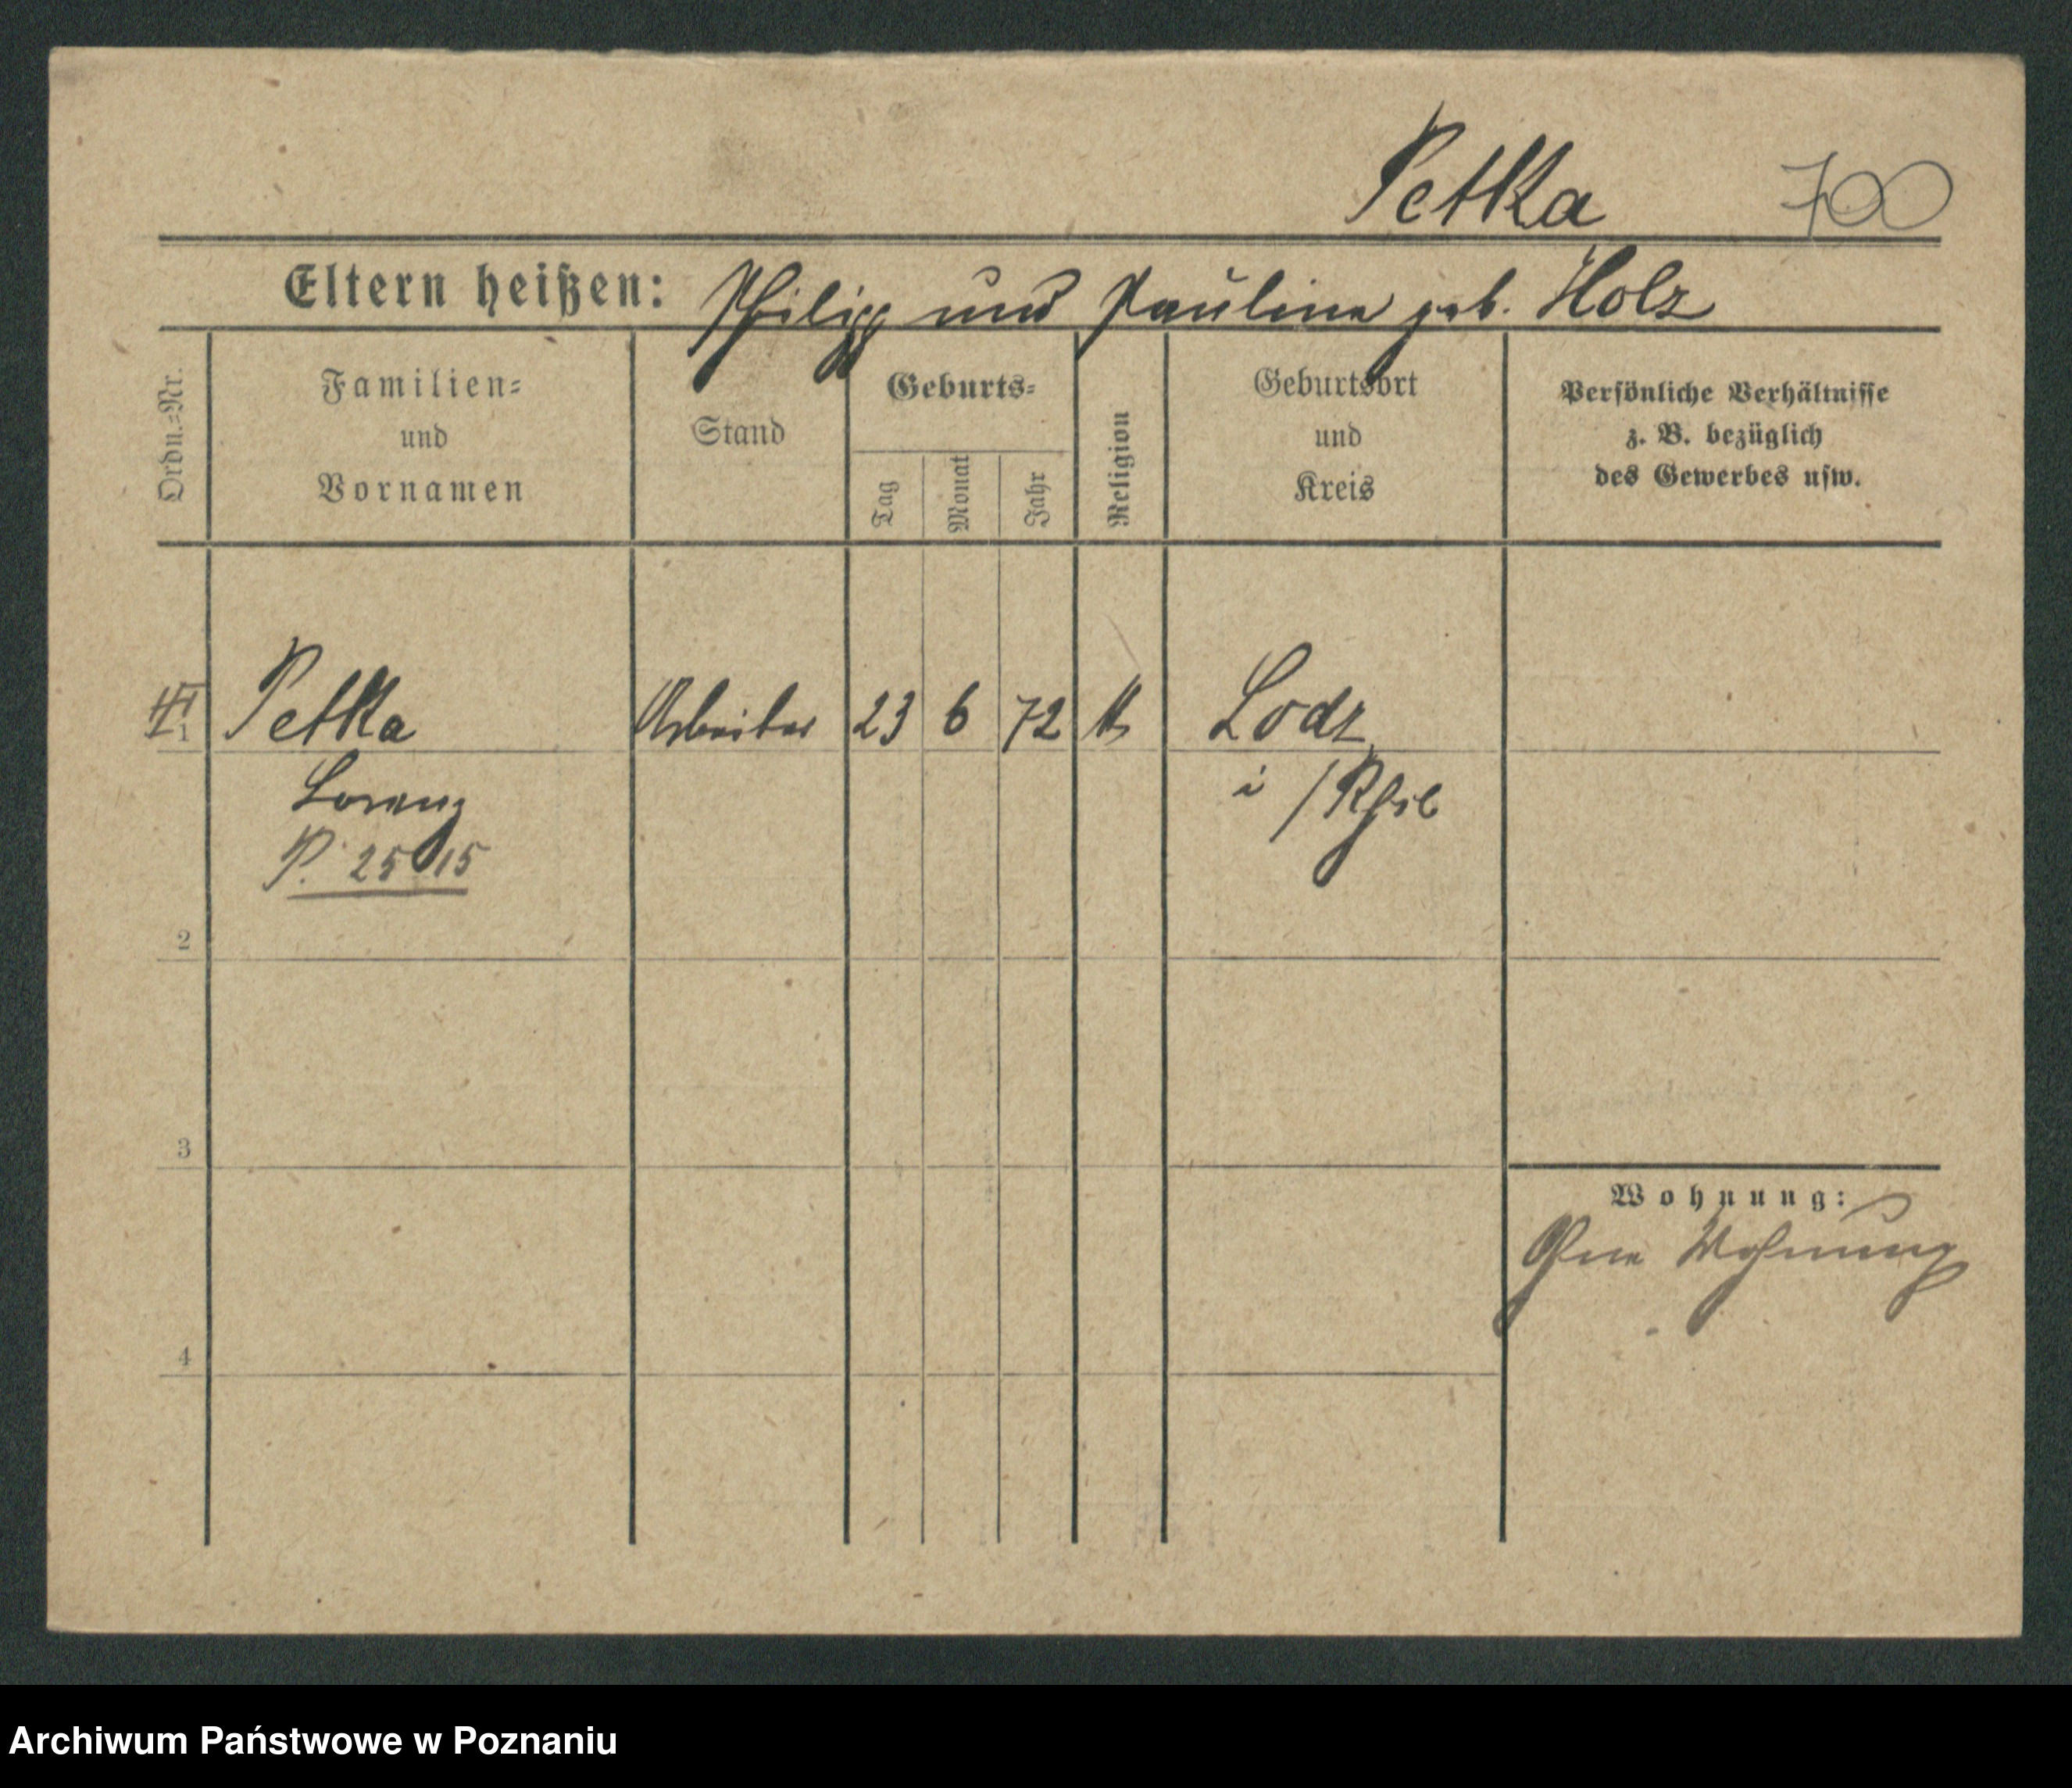 Petka 700
Eltern heißen: Philipp und Pauline geb. Holz
Ordn.-Nr.
Familien-
und
Vornamen
Stand
Geburts-
Tag
Monat
Jahr
Religion
Geburtsort
und
Kreis
Persönliche Verhältnisse
z. B. bezüglich
des Gewerbes usw.
1 Petka Arbeiter 23 6 72 Lodz
Lorenz
i /
P. 25 15
2
3
4
Wohnung:
Ohne Wohnung
Archiwum Państwowe w Poznaniu